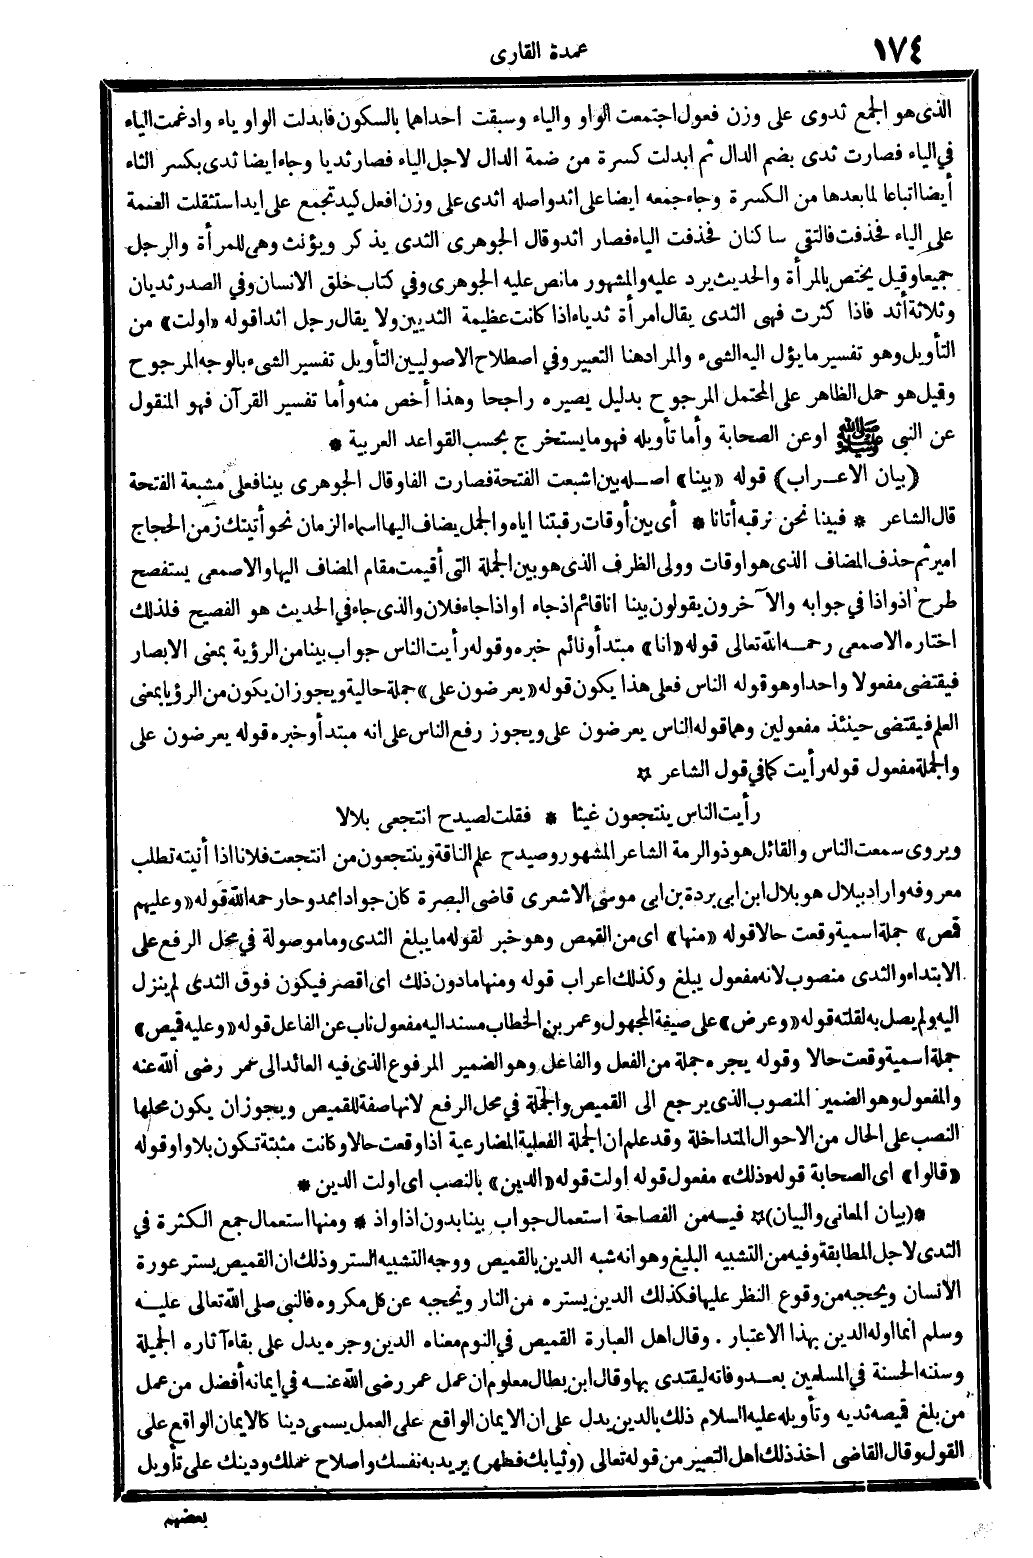 ١٧٤
عمدة القارى
الذى هو الجمع ثدوى على وزن فعول اجتمعت الواو والياء وسبقت احداهما بالسكون فابدلت الواو ياء وادغمت الياء
فى الياء فصارت ثدى بضم الدال ثم ابدلت كسرة من ضمة الدال لاجل الياء فصار ثديا وجاء ايضا ثدى بكسر الثاء
أيضا اتباعا لما بعدها من الكسرة وجاء جمعه ايضا على اثد واصله اثدى على وزن افعل كيد تجمع على ايد استثقلت الضمة
على الياء فحذفت فالتقى ساكنان فحذفت الياء فصار اثد وقال الجوهرى الثدى يذكر ويؤنث وهى للمرأة والرجل
جميعا وقيل يختص بالمرأة والحديث يرد عليه والمشهور ما نص عليه الجوهرى وفى كتاب خلق الانسان وفى الصدر ثديان
وثلاثة أثد فاذا كثرت فهى الثدى يقال امرأة ثدياء اذا كانت عظيمة الثديين ولا يقال رجل اثدا قوله «اولت» من
التأويل وهو تفسير ما يؤل اليه الشىء والمراد هنا التعبير وفى اصطلاح الاصوليين التأويل تفسير الشىء بالوجه المرجوح
وقيل هو حمل الظاهر على المحتمل المرجوح بدليل يصيره راجحا وهذا أخص منه وأما تفسير القرآن فهو المنقول
عن النبى ﷺ اوعن الصحابة وأما تأويله فهو ما يستخرج بحسب القواعد العربية *
(بيان الاعـراب) قوله «بينا» اصـله بين اشبعت الفتحة فصارت الفا وقال الجوهرى بينا فعلى مشبعة الفتحة
قال الشاعر * فبينا نحن نرقبه أتانا * أى بين أوقات رقبتنا اياه والجمل يضاف اليها اسماء الزمان نحو أتيتك زمن الحجاج
امير ثم حذف المضاف الذى هو اوقات وولى الظرف الذى هو بين الجملة التى أقيمت مقام المضاف اليها والاصمعى يستفصح
طرح اذ واذا فى جوابه والآخرون يقولون بينا انا قائم اذ جاء او اذا جاء فلان والذى جاء فى الحديث هو الفصيح فلذلك
اختاره الاصمعى رحمـه الله تعالى قوله «انا» مبتدأ ونائم خبره وقوله رأيت الناس جواب بينا من الرؤية بمعنى الابصار
فيقتضى مفعولا واحدا وهو قوله الناس فعلى هذا يكون قوله «يعرضون على» جملة حالية ويجوز ان يكون من الرؤيا بمعنى
العلم فيقتضى حينئذ مفعولين وهما قوله الناس يعرضون على ويجوز رفع الناس على انه مبتدأ وخبره قوله يعرضون على
والجملة مفعول قوله رأيت كما فى قول الشاعر ☆
رأيت الناس ينتجعون غيثا * فقلت لصيدح انتجعى بلالا
ويروى سمعت الناس والقائل هو ذو الرمة الشاعر المشهور وصيدح علم الناقة وينتجعون من انتجعت فلانا اذا أتيته تطلب
معروفه واراد ببلال هو بلال ابن ابى بردة بن ابى موسى الاشعرى قاضى البصرة كان جوادا ممدوحا رحمه الله قوله «وعليهم
قمص» جملة اسمية وقعت حالا قوله «منها» اى من القمص وهو خبر لقوله ما يبلغ الثدى وما موصولة فى محل الرفع على
الابتداء والثدى منصوب لانه مفعول يبلغ وكذلك اعراب قوله ومنها مادون ذلك اى اقصر فيكون فوق الثدى لم ينزل
اليه ولم يصل به لقلته قوله «وعرض» على صيغة المجهول وعمر بن الخطاب مسند اليه مفعول ناب عن الفاعل قوله «وعليه قميص»
جملة اسمية وقعت حالا وقوله يجره جملة من الفعل والفاعل وهو الضمير المرفوع الذى فيه العائد الى عمر رضى الله عنه
والمفعول وهو الضمير المنصوب الذى يرجع الى القميص والجملة فى محل الرفع لانها صفة للقميص ويجوز ان يكون محلها
النصب على الحال من الاحوال المتداخلة وقد علم ان الجملة الفعلية المضارعية اذا وقعت حالا وكانت مثبتة تكون بلا واو قوله
«قالوا» اى الصحابة قوله «ذلك» مفعول قوله اولت قوله «الدين» بالنصب اى اولت الدين *
*(بيان المعانى والبيان)☆ فيـه من الفصاحة استعمال جواب بينا بدون اذا واذ * ومنها استعمال جمع الكثرة فى
الثدى لاجل المطابقة وفيه من التشبيه البليغ وهو انه شبه الدين بالقميص ووجه التشبيه الستر وذلك ان القميص يستر عورة
الانسان ويحجبه من وقوع النظر عليها فكذلك الدين يستره من النار وتحجبه عن كل مكروه فالنبى صلى الله تعالى عليـه
وسلم انما اوله الدين بهذا الاعتبار . وقال اهل العبارة القميص فى النوم معناه الدين وجره يدل على بقاء آثاره الجميلة
وسننه الحسنة فى المسلمين بعـد وفاته ليقتدى بها وقال ابن بطال معلوم ان عمل عمر رضى الله عنـه فى ايمانه أفضل من عمل
من بلغ قميصه ثديه وتأويله عليه السلام ذلك بالدين يدل على ان الايمان الواقع على العمل يسمى دينا كالايمان الواقع على
القول وقال القاضى اخذ ذلك اهل التعبير من قوله تعالى (وثيابك فطهر) يريد به نفسك واصلاح عملك ودينك على تأويل
بعضهم